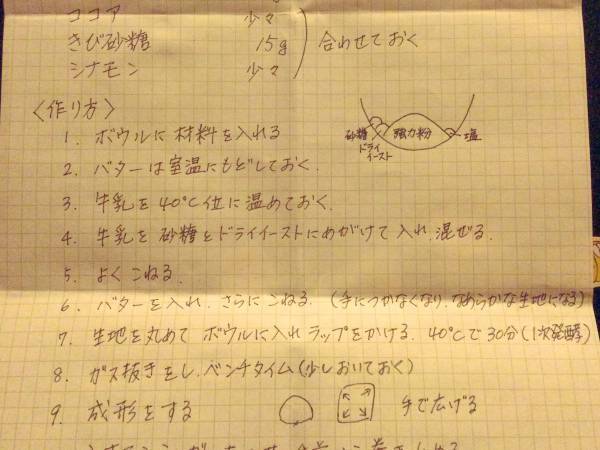 ココア 少々
きび砂糖 15g
シナモン 少々
合わせておく
〈作り方〉
1. ボウルに材料を入れる
砂糖
ドライイースト
強力粉
塩
2. バターは室温にもどしておく.
3. 牛乳を40℃位に温めておく.
4. 牛乳を砂糖とドライイーストにめがけて入れ.混ぜる.
5. よくこねる.
6. バターを入れ.さらにこねる.(手につかなくなり.なめらかな生地になる)
7. 生地を丸めてボウルに入れラップをかける.40℃で30分(1次発酵)
8. ガス抜きをし.ベンチタイム(少しおいておく)
9. 成形をする 手で広げる